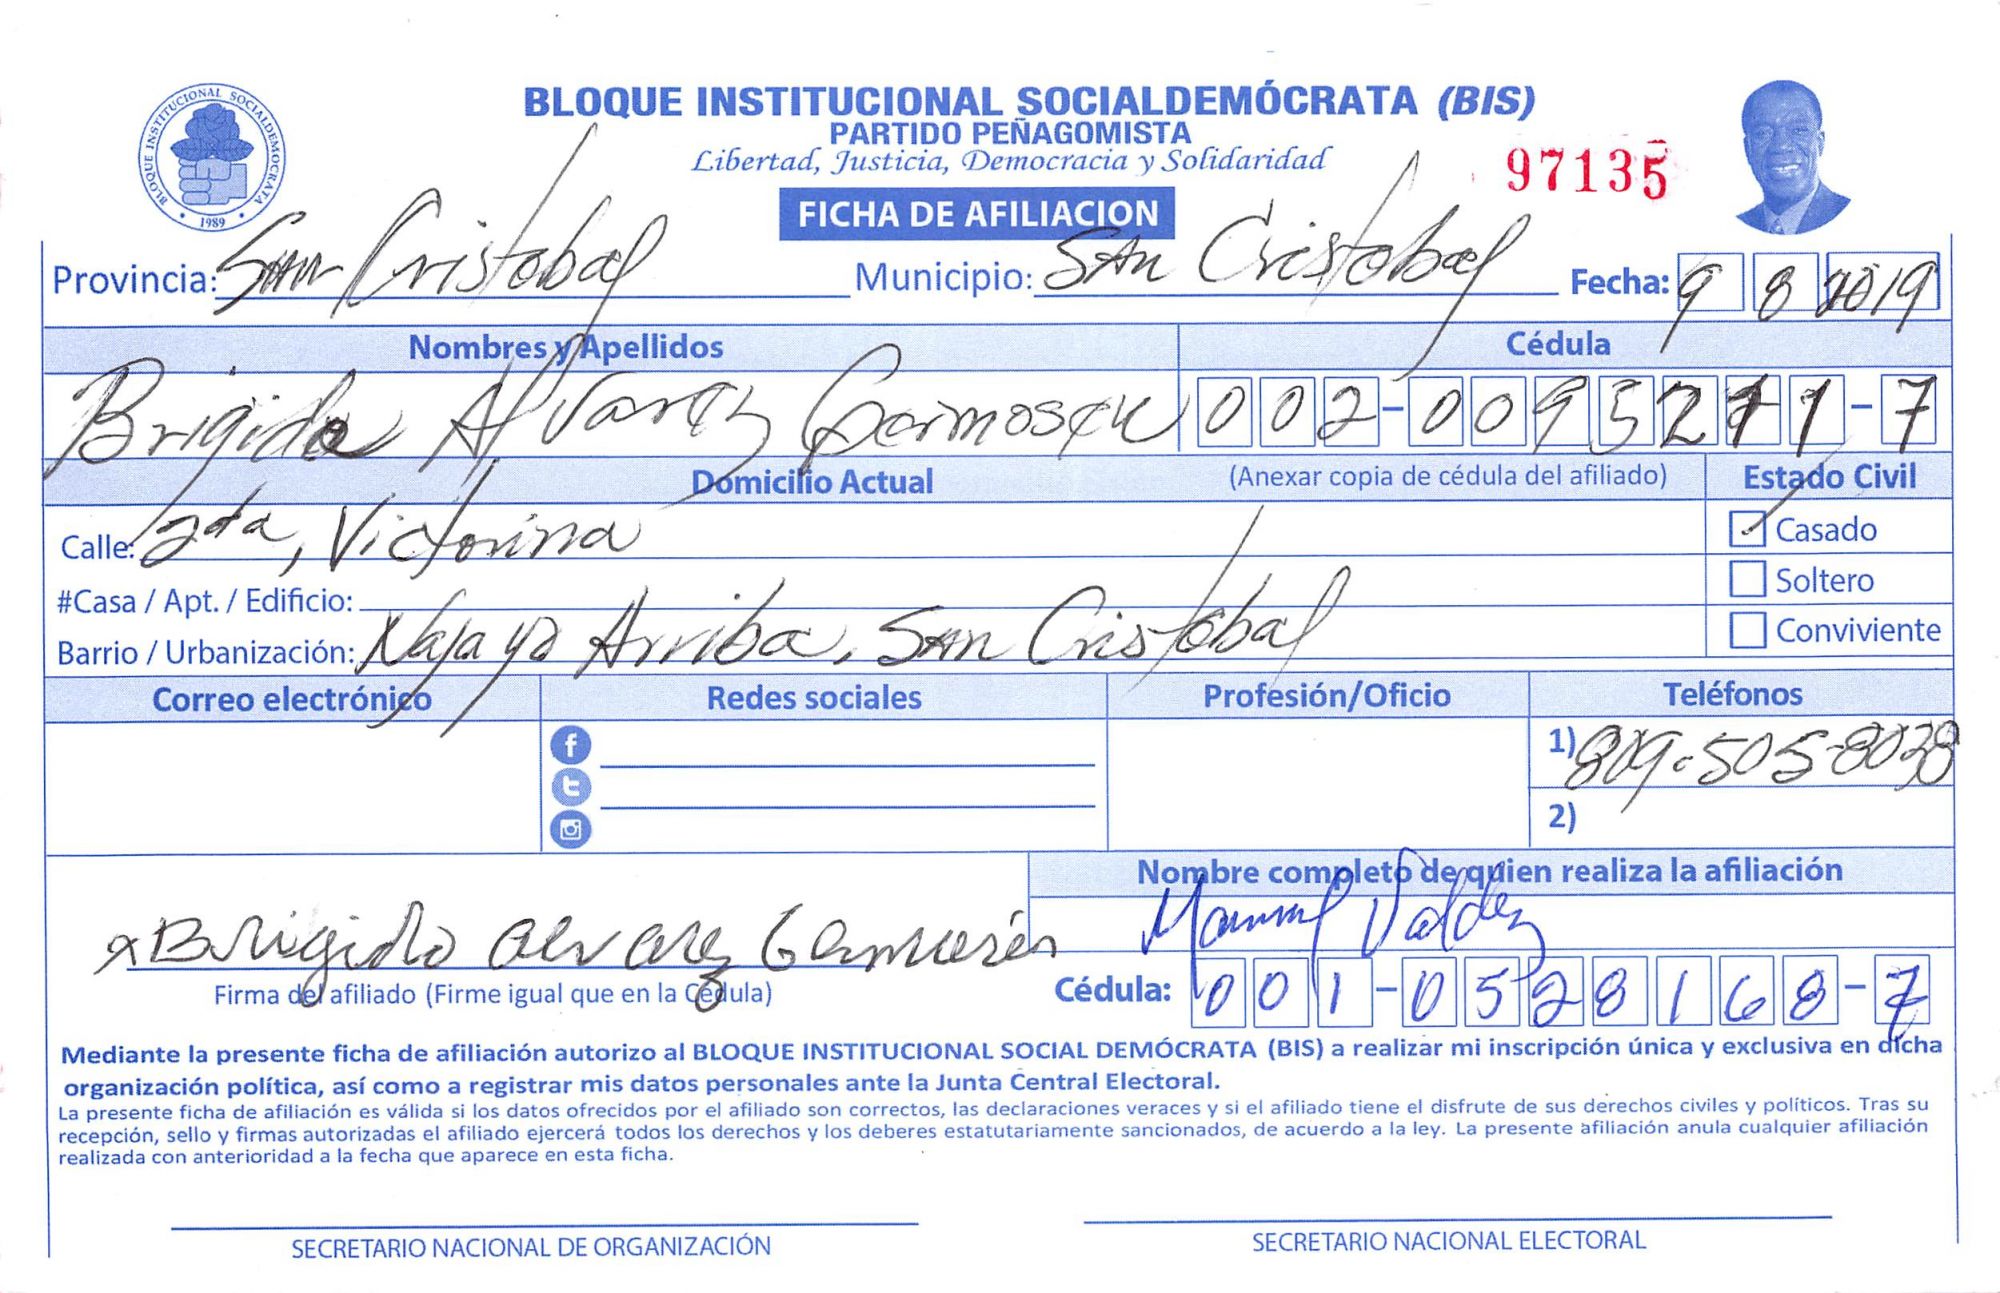 BLOQUE INSTITUCIONAL SOCIALDEMOCRATA
1989
BLOQUE INSTITUCIONAL SOCIALDEMÓCRATA (BIS)
PARTIDO PEÑAGOMISTA
Libertad, Justicia, Democracia y Solidaridad
97135
FICHA DE AFILIACION
Provincia: San Cristobal Municipio: San Cristobal Fecha: 9 8 2019
Nombres y Apellidos Cédula
Alvarez Germosen 002-0095211-7
Domicilio Actual (Anexar copia de cédula del afiliado) Estado Civil
Calle: 2da, Victorina Casado
#Casa / Apt. / Edificio: Soltero
Barrio / Urbanización: Najayo Arriba, San Cristobal Conviviente
Correo electrónico Redes sociales Profesión/Oficio Teléfonos
1) 809-505-8038
2)
Nombre completo de quien realiza la afiliación
Manuel Valdez
Brigido alvarez
Firma del afiliado (Firme igual que en la Cédula) Cédula: 001-0528168-7
Mediante la presente ficha de afiliación autorizo al BLOQUE INSTITUCIONAL SOCIAL DEMÓCRATA (BIS) a realizar mi inscripción única y exclusiva en dicha
organización política, así como a registrar mis datos personales ante la Junta Central Electoral.
La presente ficha de afiliación es válida si los datos ofrecidos por el afiliado son correctos, las declaraciones veraces y si el afiliado tiene el disfrute de sus derechos civiles y políticos. Tras su
recepción, sello y firmas autorizadas el afiliado ejercerá todos los derechos y los deberes estatutariamente sancionados, de acuerdo a la ley. La presente afiliación anula cualquier afiliación
realizada con anterioridad a la fecha que aparece en esta ficha.
SECRETARIO NACIONAL DE ORGANIZACIÓN SECRETARIO NACIONAL ELECTORAL